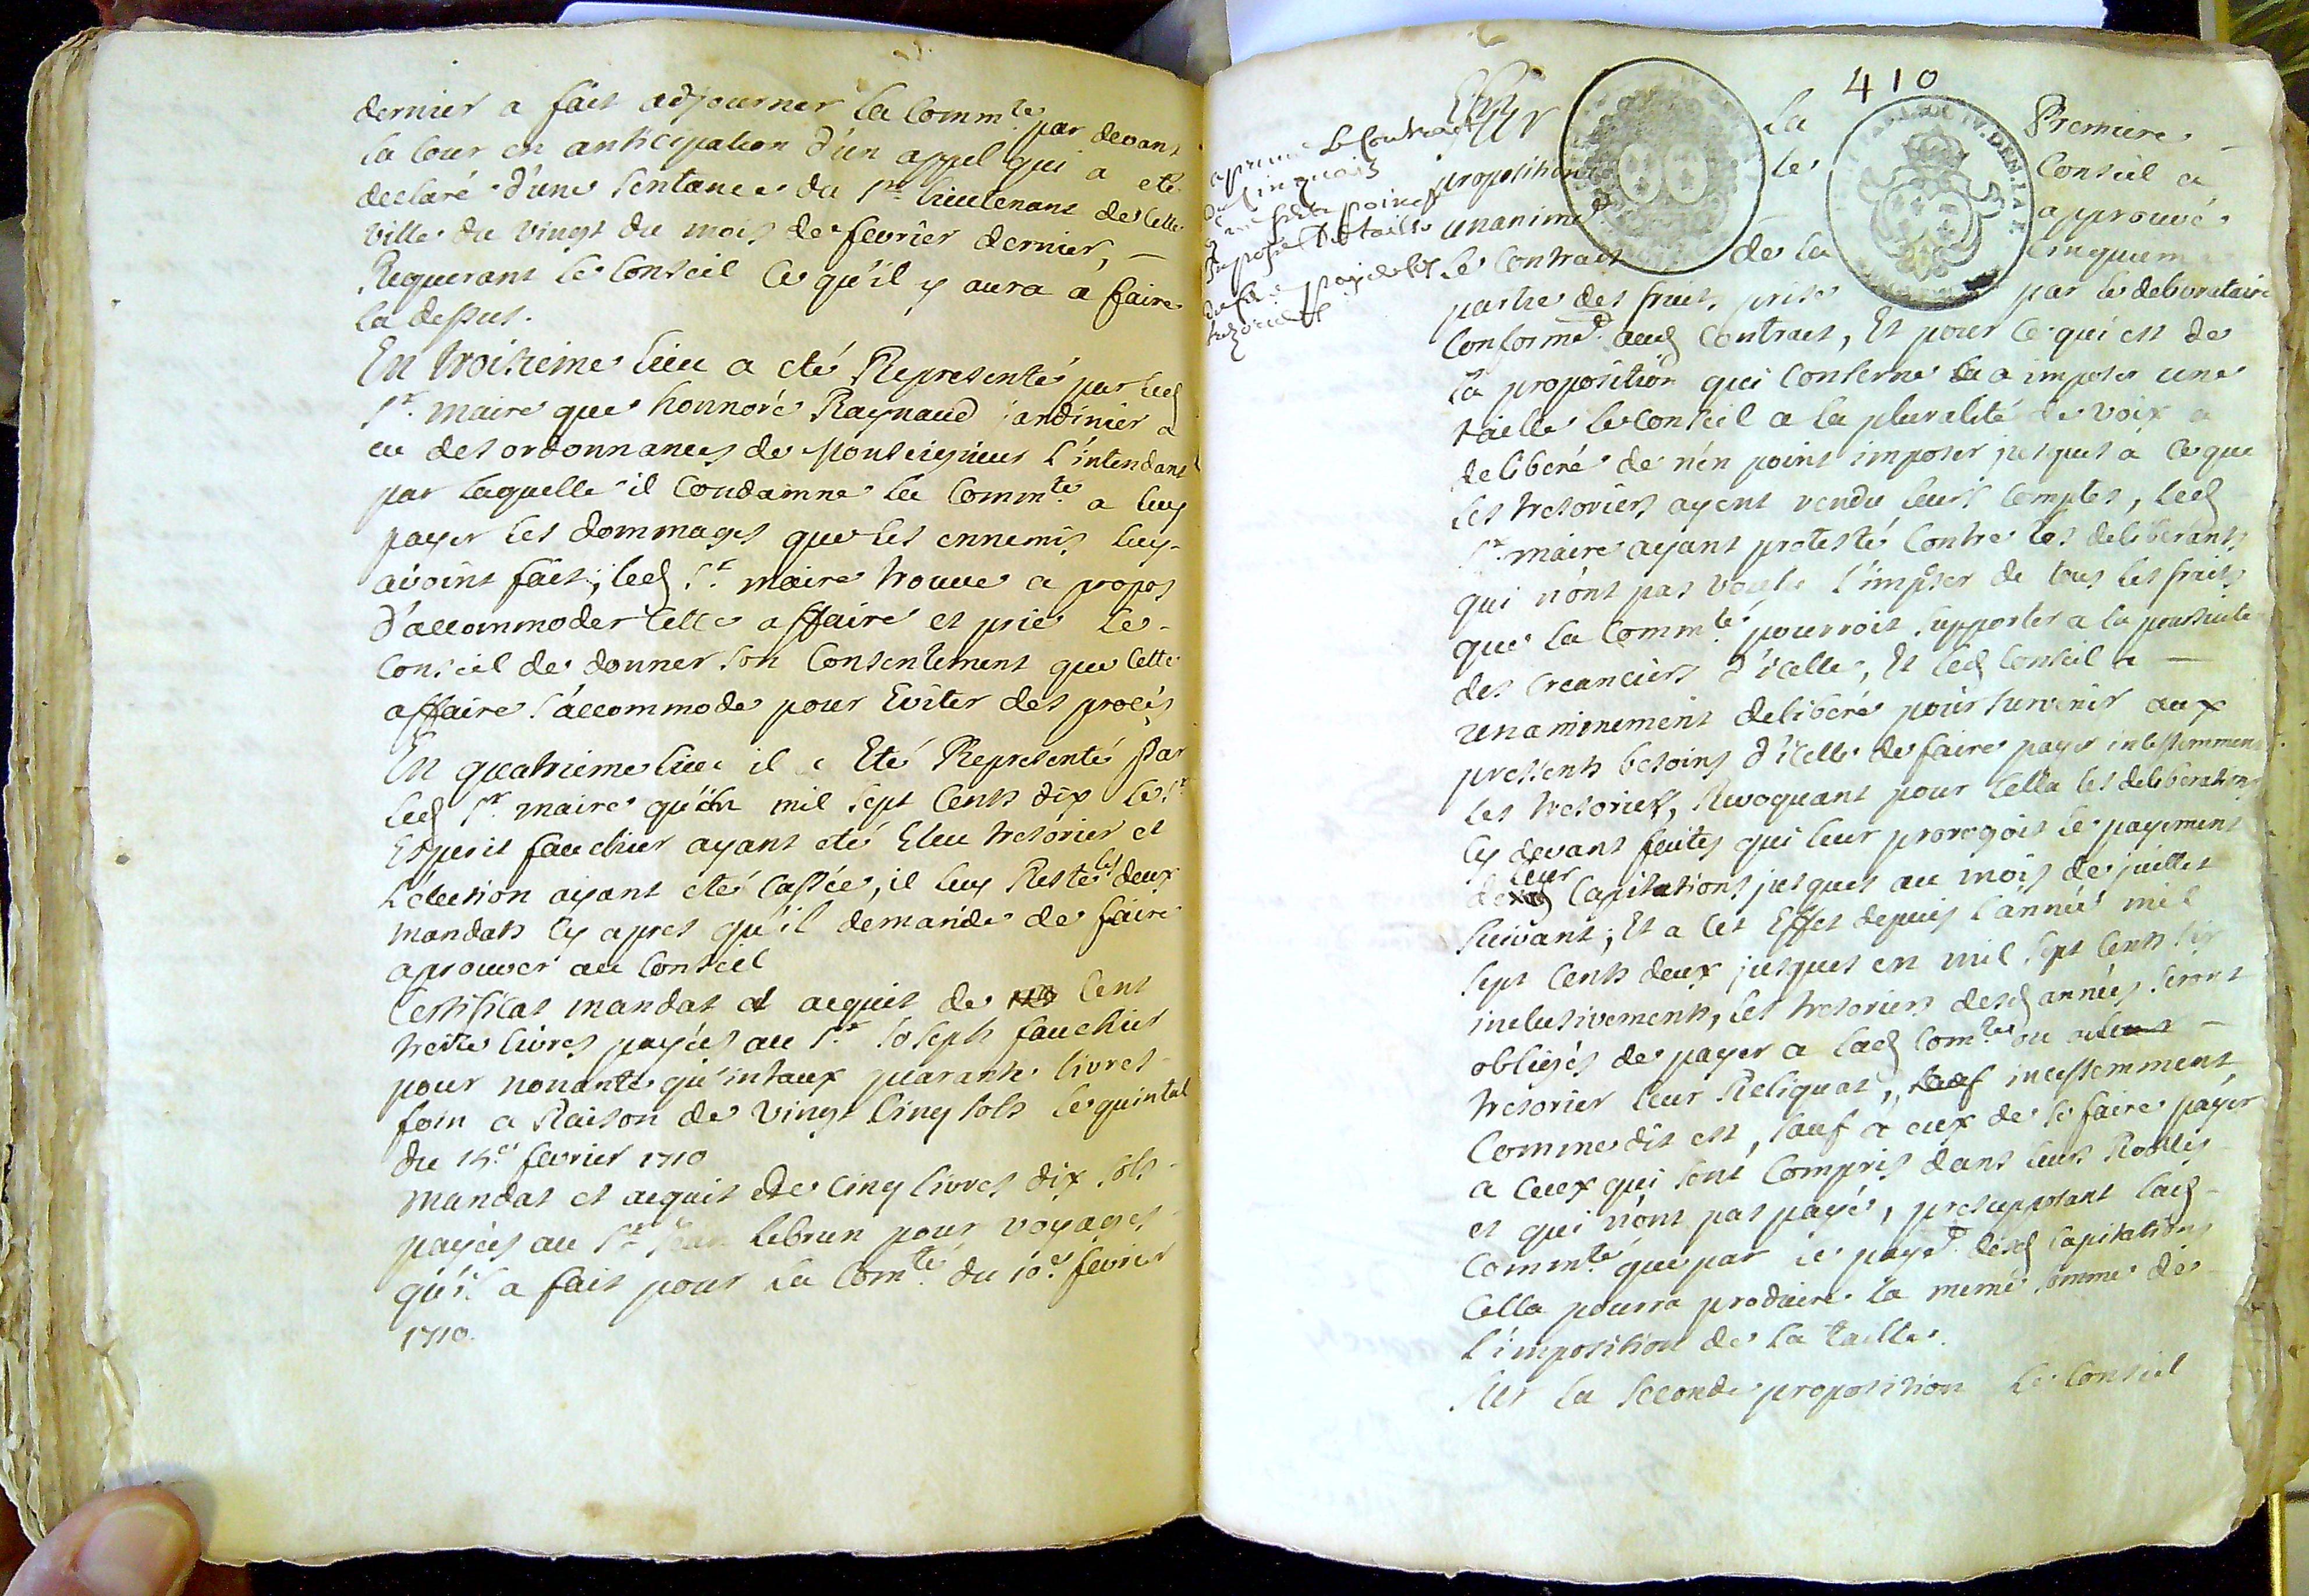 dernier a fait adjourner la Comm.te par devant
la Cour en anticipation d'un appel qui a eté
declaré d'une sentance du S.r lieutenant de cette
ville du vingt du mois de fevrier dernier, —
Requerant le Conseil ce qu'il y aura a faire
la dessus.
En troisieme lieu a eté Representé par led
S.r maire que honnoré Raynaud jardinier a
eu des ordonnances de Monseigneur l'intendant
par laquelle il Condamne la Comm.te a luy
payer les dommages que les ennemis luy
avoint fait; led S.r maire trouve a propos
d'accommoder cette affaire et prie le
Conseil de donner son Consentement que cette
affaire s'accommode pour Eviter des procés
En quatrieme lieu il a Eté Representé Par
led S.r maire qu'en mil sept cents dix le S.r
Esperit fauchier ayant eté Eleu tresorier et
l'election ayant eté cassée, il luy Reste les deux
mandats cy apres qu'il demande de faire
aprouver au Conseil
Certificat mandat et acquit de cent
treize livres payées au S.r Joseph fauchier
pour nonante quintaux quarante livres
foin a Raison de vingt cinq sols le quintal
du 15.e fevrier 1710
Mandat et acquit de cinq livres dix sols
payées au S.r Jean lebrun pour voyages
qu'il a fait pour la Com.té du 10.e fevrier
1710.
410
aprouve le Contract
du cinquain
imposer de taille
de faire payer les
trezoriers
Sur la Premiere
proposition le Conseil a
unanime.t approuvé
le Contract de la cinquieme
partie des fruits prise par le deliberataire
Conforme.t aud Contract, Et pour ce qui est de
la proposition qui Conserne la a imposer une
taille le Conseil a la pluralité de voix a
deliberé de n'en point imposer jusques a ce que
les tresoriers ayent rendu leurs Comptes, led
S.r maire ayant protesté Contre les deliberants
qui n'ont pas voulu l'imposer de tous les fraits
que la Comm.té pourroit supporter a la poursuite
des Creanciers d'icelle, Et led Conseil a —
unanimement deliberé pour survenir aux
pressents besoins d'icelle de faire payer incessamment
les tresoriers, Revoquant pour cella les deliberations
cy devant faites qui leur prorogoit le payement
de leur Capitations jusques au mois de juillet
suivant; Et a cet Effet depuis l'année mil
sept cents deux jusques en mil sept cents six
inclusivements, les tresoriers desd années seront
obligés de payer a lad Com.té ou a leur —
tresorier leur Reliquat, incessemment,
Comme dit est, sauf a eux de se faire payer
a ceux qui sont Compris dans leurs Rolles
et qui n'ont pas payé, presupposant lad
Comm.té que par le paye.t desd Capitations
Cella pourra produire la meme somme de
l'imposition de la taille.
Sur la seconde proposition le Conseil